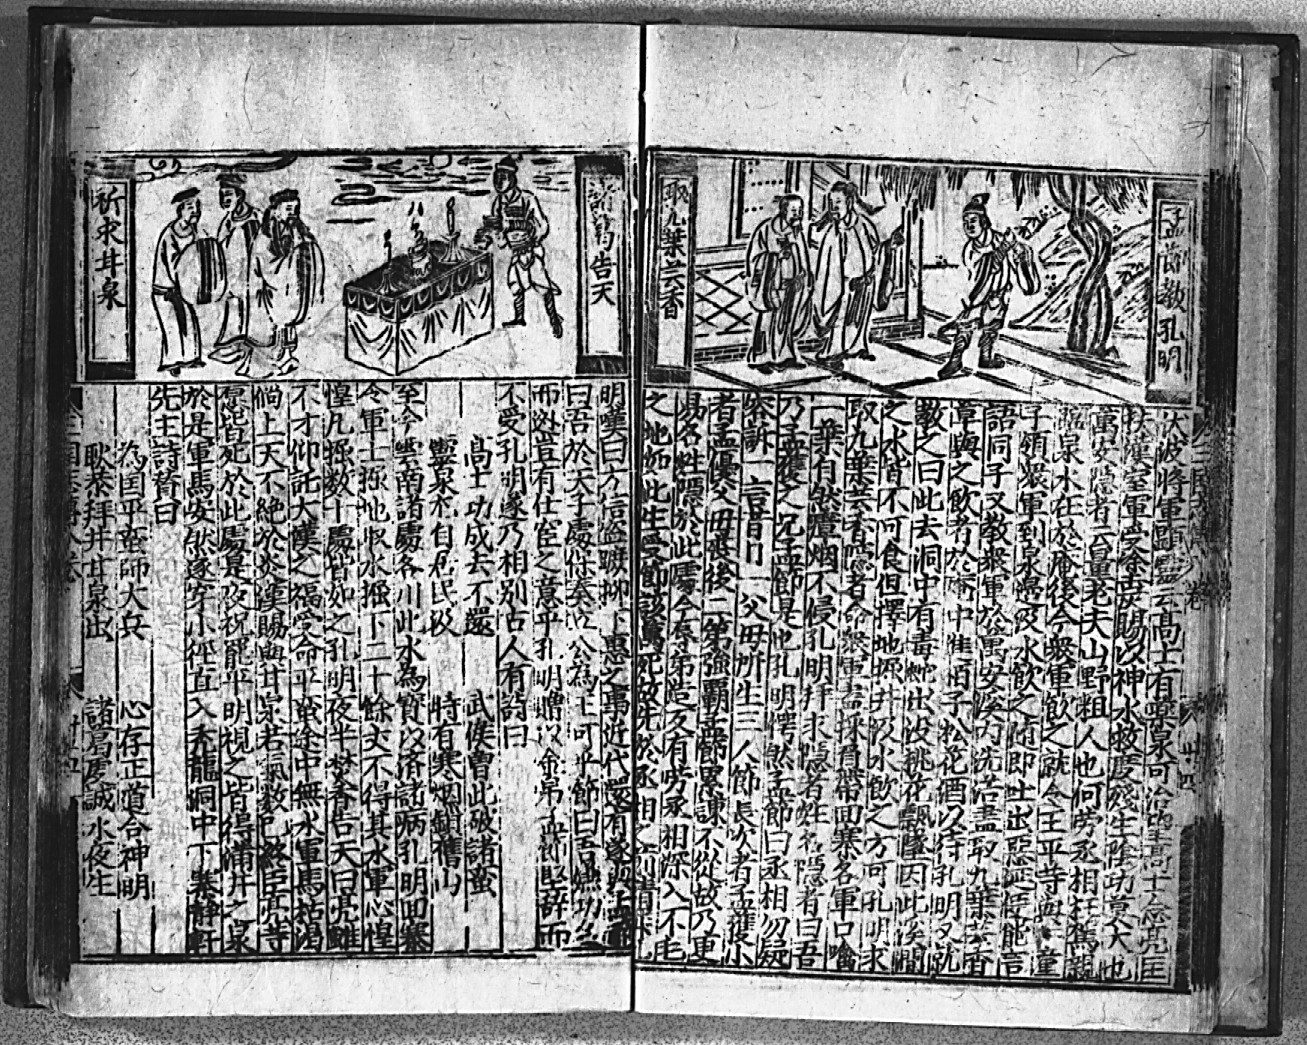 孟節教孔明
取九葉芸香
伏波將軍顯靈云高士有靈泉可治望高士念亮匡
扶漢室軍受塗炭賜以神水救度殘生陰功莫大也
萬安隱者云量老夫山野粗人也何勞丞相枉駕親
臨泉水在於庵後令眾軍飲之就令王平等與童
子領眾軍到泉隈汲水飲之隨即吐出惡涎便能言
語同子又教眾軍於萬安溪內洗浴盡取九葉芸香
草與之飲者於庵中進栢子松花酒以待孔明又訊
教之曰此去洞中有毒蛇出沒桃花飄墜因此溪澗
之水皆不可食但擇地掘井汲水飲之方可孔明求
取九葉芸香隱者命眾軍盡採負帶回寨各軍口噙
一葉自然瘴烟不侵孔明拜求隱者姓名隱者曰吾
乃孟獲之兄孟節是也孔明愕然孟節曰丞相勿疑
容訴一言昔日一父母所生三人節長次者孟獲小
者孟優父母喪後二弟強霸孟節累諫不從故乃更
易名姓隱於此處今辱弟造反有勞丞相深入不毛
之地如此生受節該萬死故先於丞相之前請罪孔
諸葛告天
祈求井泉
明嘆曰方信盜跖柳下惠之事近代還有遂與孟節
曰吾於天子處保奏汝公為王可乎節曰吾嫌功名
而逃豈有仕宦之意乎孔明贈以金帛孟節堅辭而
不受孔明遂乃相別古人有詩曰
高士功成去不還 武侯曾此破諸蠻
靈泉亦自居民汲 時有寒烟鎖舊山
至今雲南諸處各川此水為寶以濟諸病孔明回寨
令軍士掘地取水掘下二十餘丈不得其水軍心惶
惶凡掘數十處皆如之孔明夜半焚香告天曰亮雖
不才仰託大漢之福受命平蠻途中無水軍馬枯渴
倘上天不絕於炎漢賜與甘泉若氣數已終臣亮等
願皆死於此處是夜祝罷平明視之皆得滿井之泉
於是軍馬安然遂穿小徑直入禿龍洞中下寨靜軒
先王詩賛曰
為囯平蛮師大兵 心存正道合神明
耿恭拜井甘泉出 諸葛虔誠水夜生